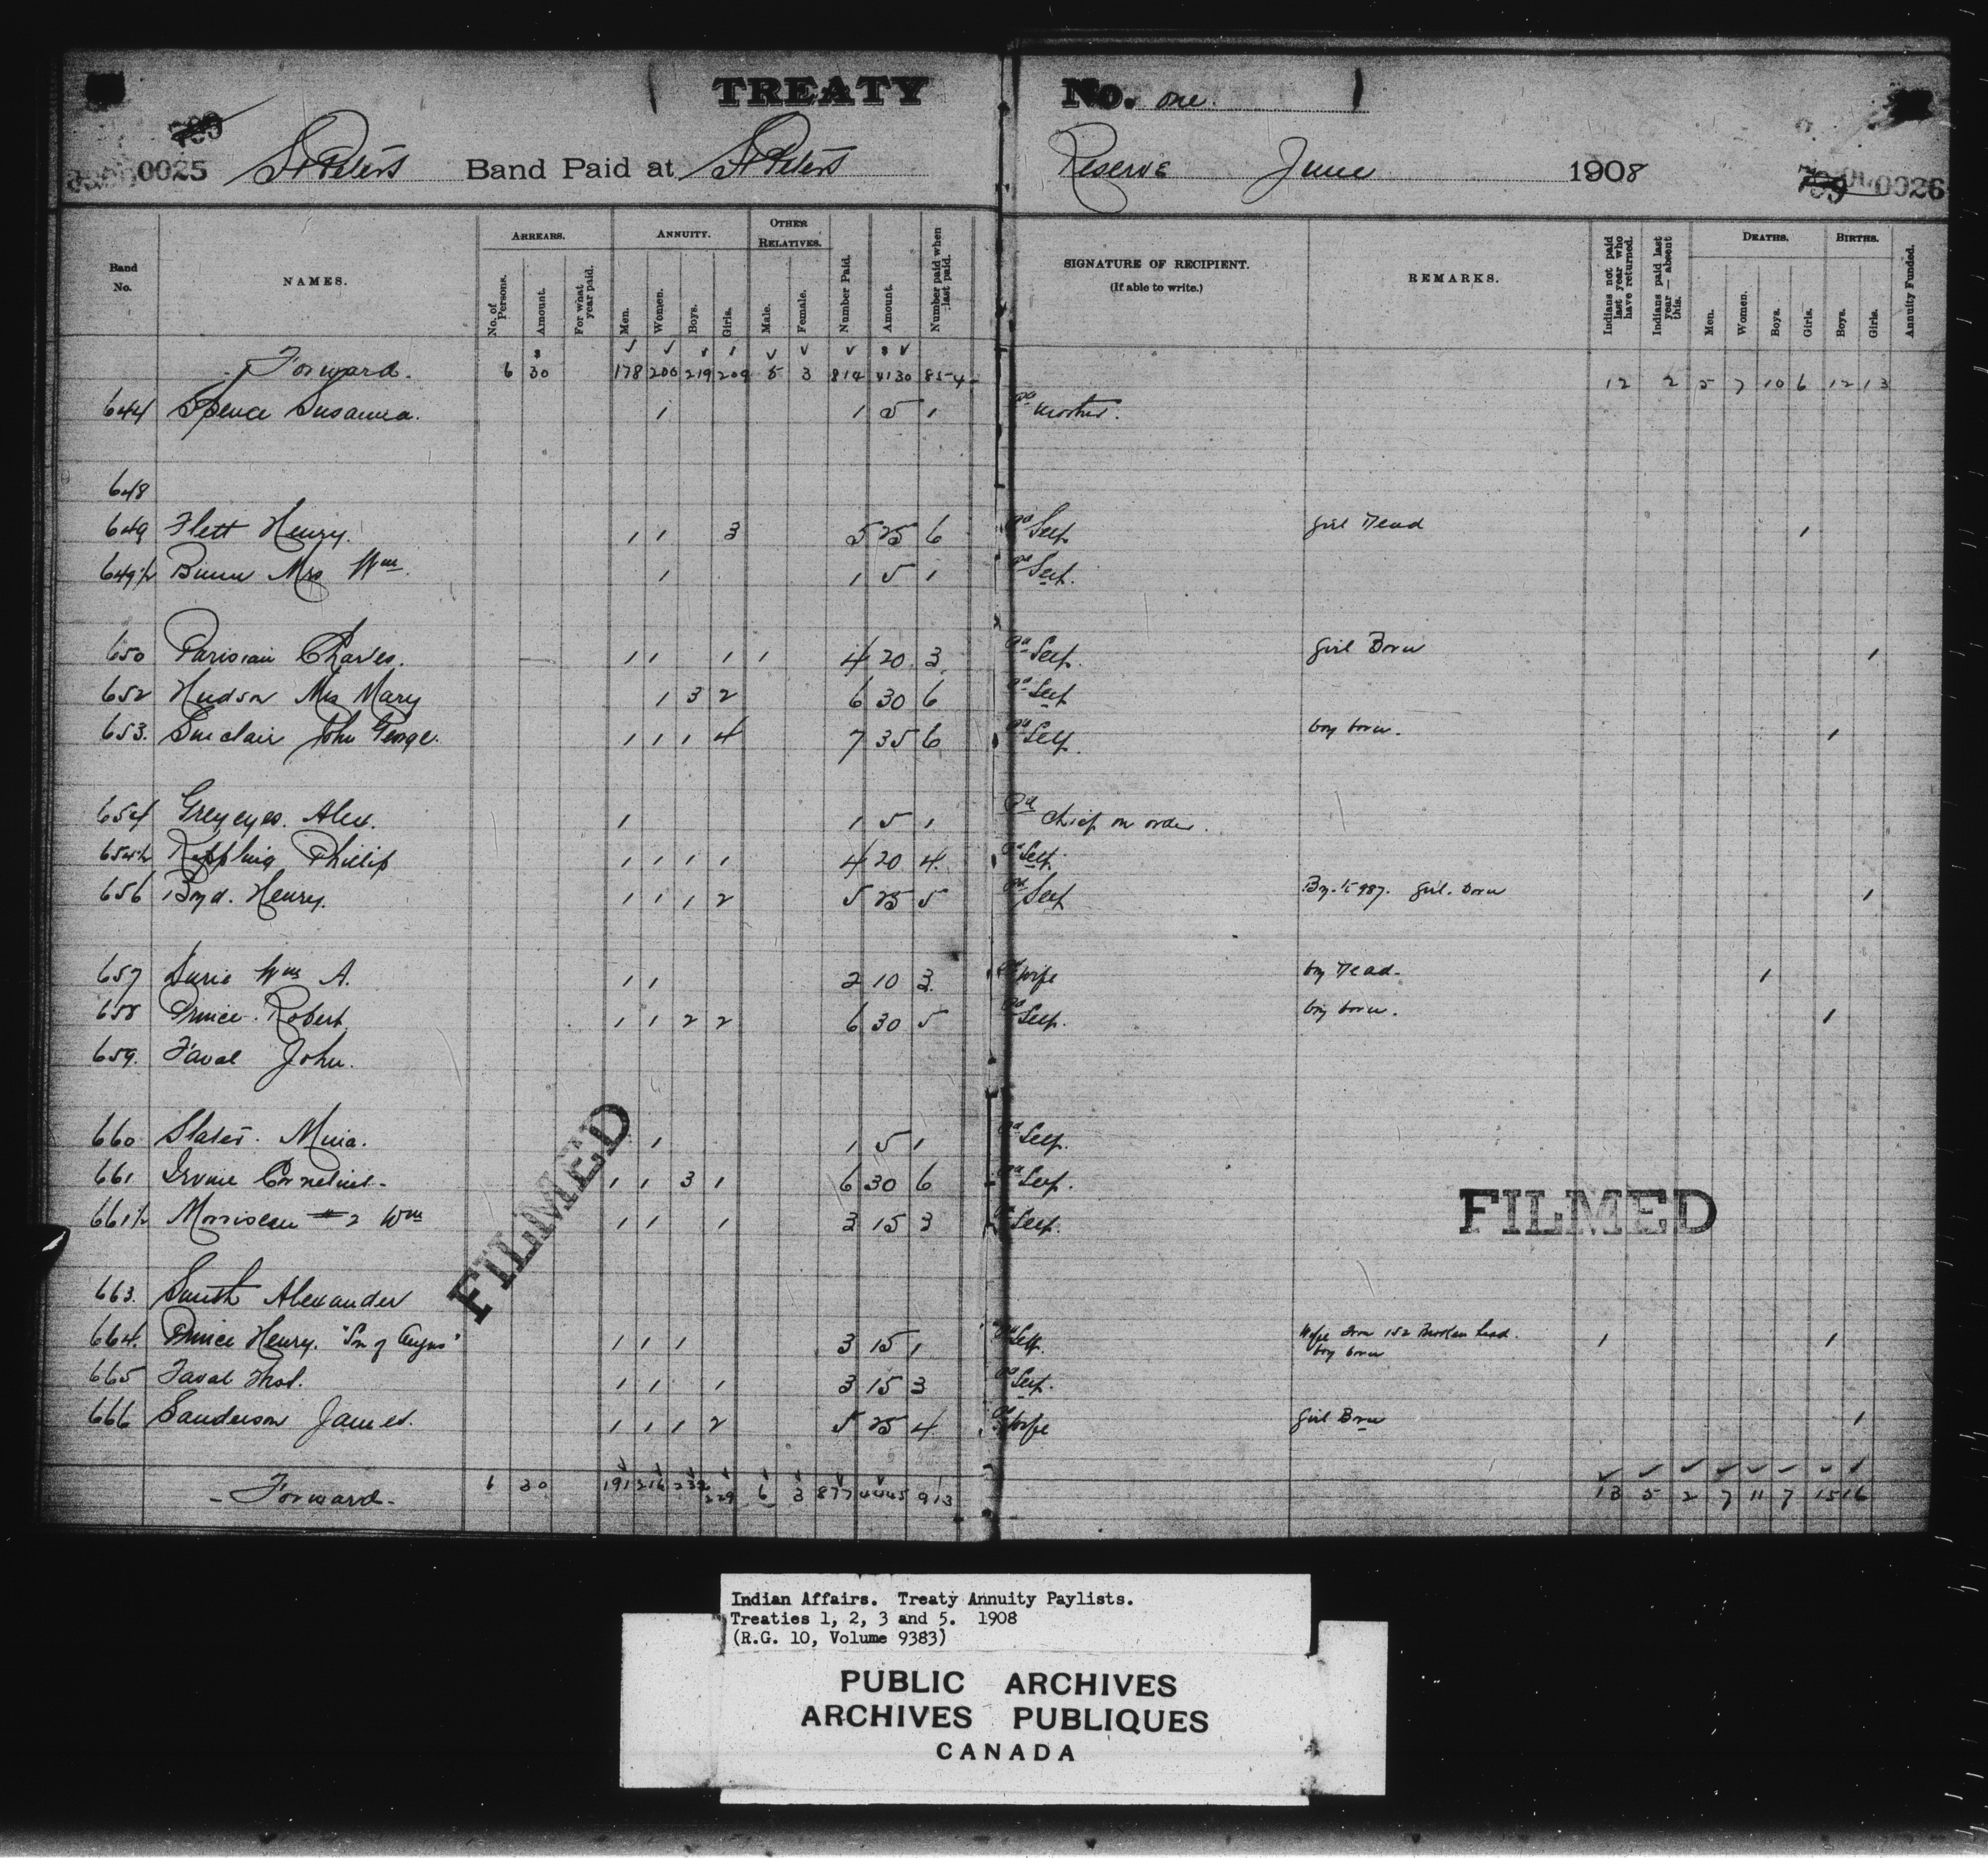 TREATY No. one.
0025 St Peters Band Paid at St Peters Reserve June 1908 0026
Band No. NAMES. ARREARS. No. of Persons. Amount. For what year paid. ANNUITY. Men. Women. Boys. Girls. OTHER RELATIVES. Male. Female. Number Paid. Amount. Number paid when last paid. SIGNATURE OF RECIPIENT. (If able to write.) REMARKS. Indians not paid last year who have returned. Indians paid last year — absent this. DEATHS. Men. Women. Boys. Girls. BIRTHS. Boys. Girls. Annuity Funded.
Forward. 6 30 178 200 219 209 5 3 814 4130 854 12 2 5 7 10 6 12 13
644 Spence Susanna. 1 1 5 1 Pd mother.
648
649 Flett Henry. 1 1 3 5 25 6 Pd Self girl Dead 1
649½ Bunn Mrs Wm. 1 1 5 1 Pd Self.
650 Parisian Charles. 1 1 1 1 4 20 3 Pd Self. girl Born 1
652 Hudson Mrs Mary 1 3 2 6 30 6 Pd Self
653. Sinclair John George. 1 1 1 4 7 35 6 Pd Self. boy born. 1
654 Greyeyes. Alex. 1 1 5 1 Pd Chief on order.
654½ Phillip 1 1 1 1 4 20 4 Pd Self.
656 Boyd. Henry. 1 1 1 2 5 25 5 Pd Self girl. Born 1
657 Wm A. 1 1 2 10 3 Pd wife boy Dead. 1
658 Prince. Robert 1 1 2 2 6 30 5 Pd Self. boy born. 1
659. Faval John.
660 Slater. 1 1 5 1 Pd Self.
661 Irvine Cornelius 1 1 3 1 6 30 6 Pd Self.
661½ Morriseau #2 Wm 1 1 1 3 15 3 Pd Self.
FILMED
FILMED
663. Smith Alexander
664. Prince Henry. "Son of Angus" 1 1 1 3 15 1 Pd Self. Wife from 152 Broken Head. 1 1
boy born
665 Faval Thos. 1 1 1 3 15 3 Pd Self.
666 Sanderson James. 1 1 1 2 5 25 4 Pd Wife Girl Born 1
Forward 6 30 191 216 232 229 6 3 877 4445 913 13 5 2 7 11 7 15 16
Indian Affairs. Treaty Annuity Paylists.
Treaties 1, 2, 3 and 5. 1908
(R.G. 10, Volume 9383)
PUBLIC ARCHIVES
ARCHIVES PUBLIQUES
CANADA